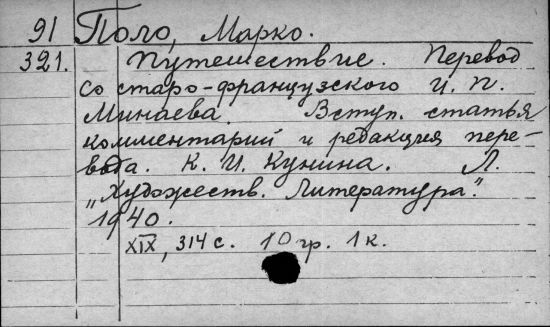 91 Поло, Марко.
321. Путешествие. Перевод
со старо-французского И. П.
Минаева. Вступ. статья
комментарий и редакция пере-
вода. К. И. Кунина. Л.
„Художеств. Литература".
1940.
XIX, 314 с. 10 гр. 1 к.